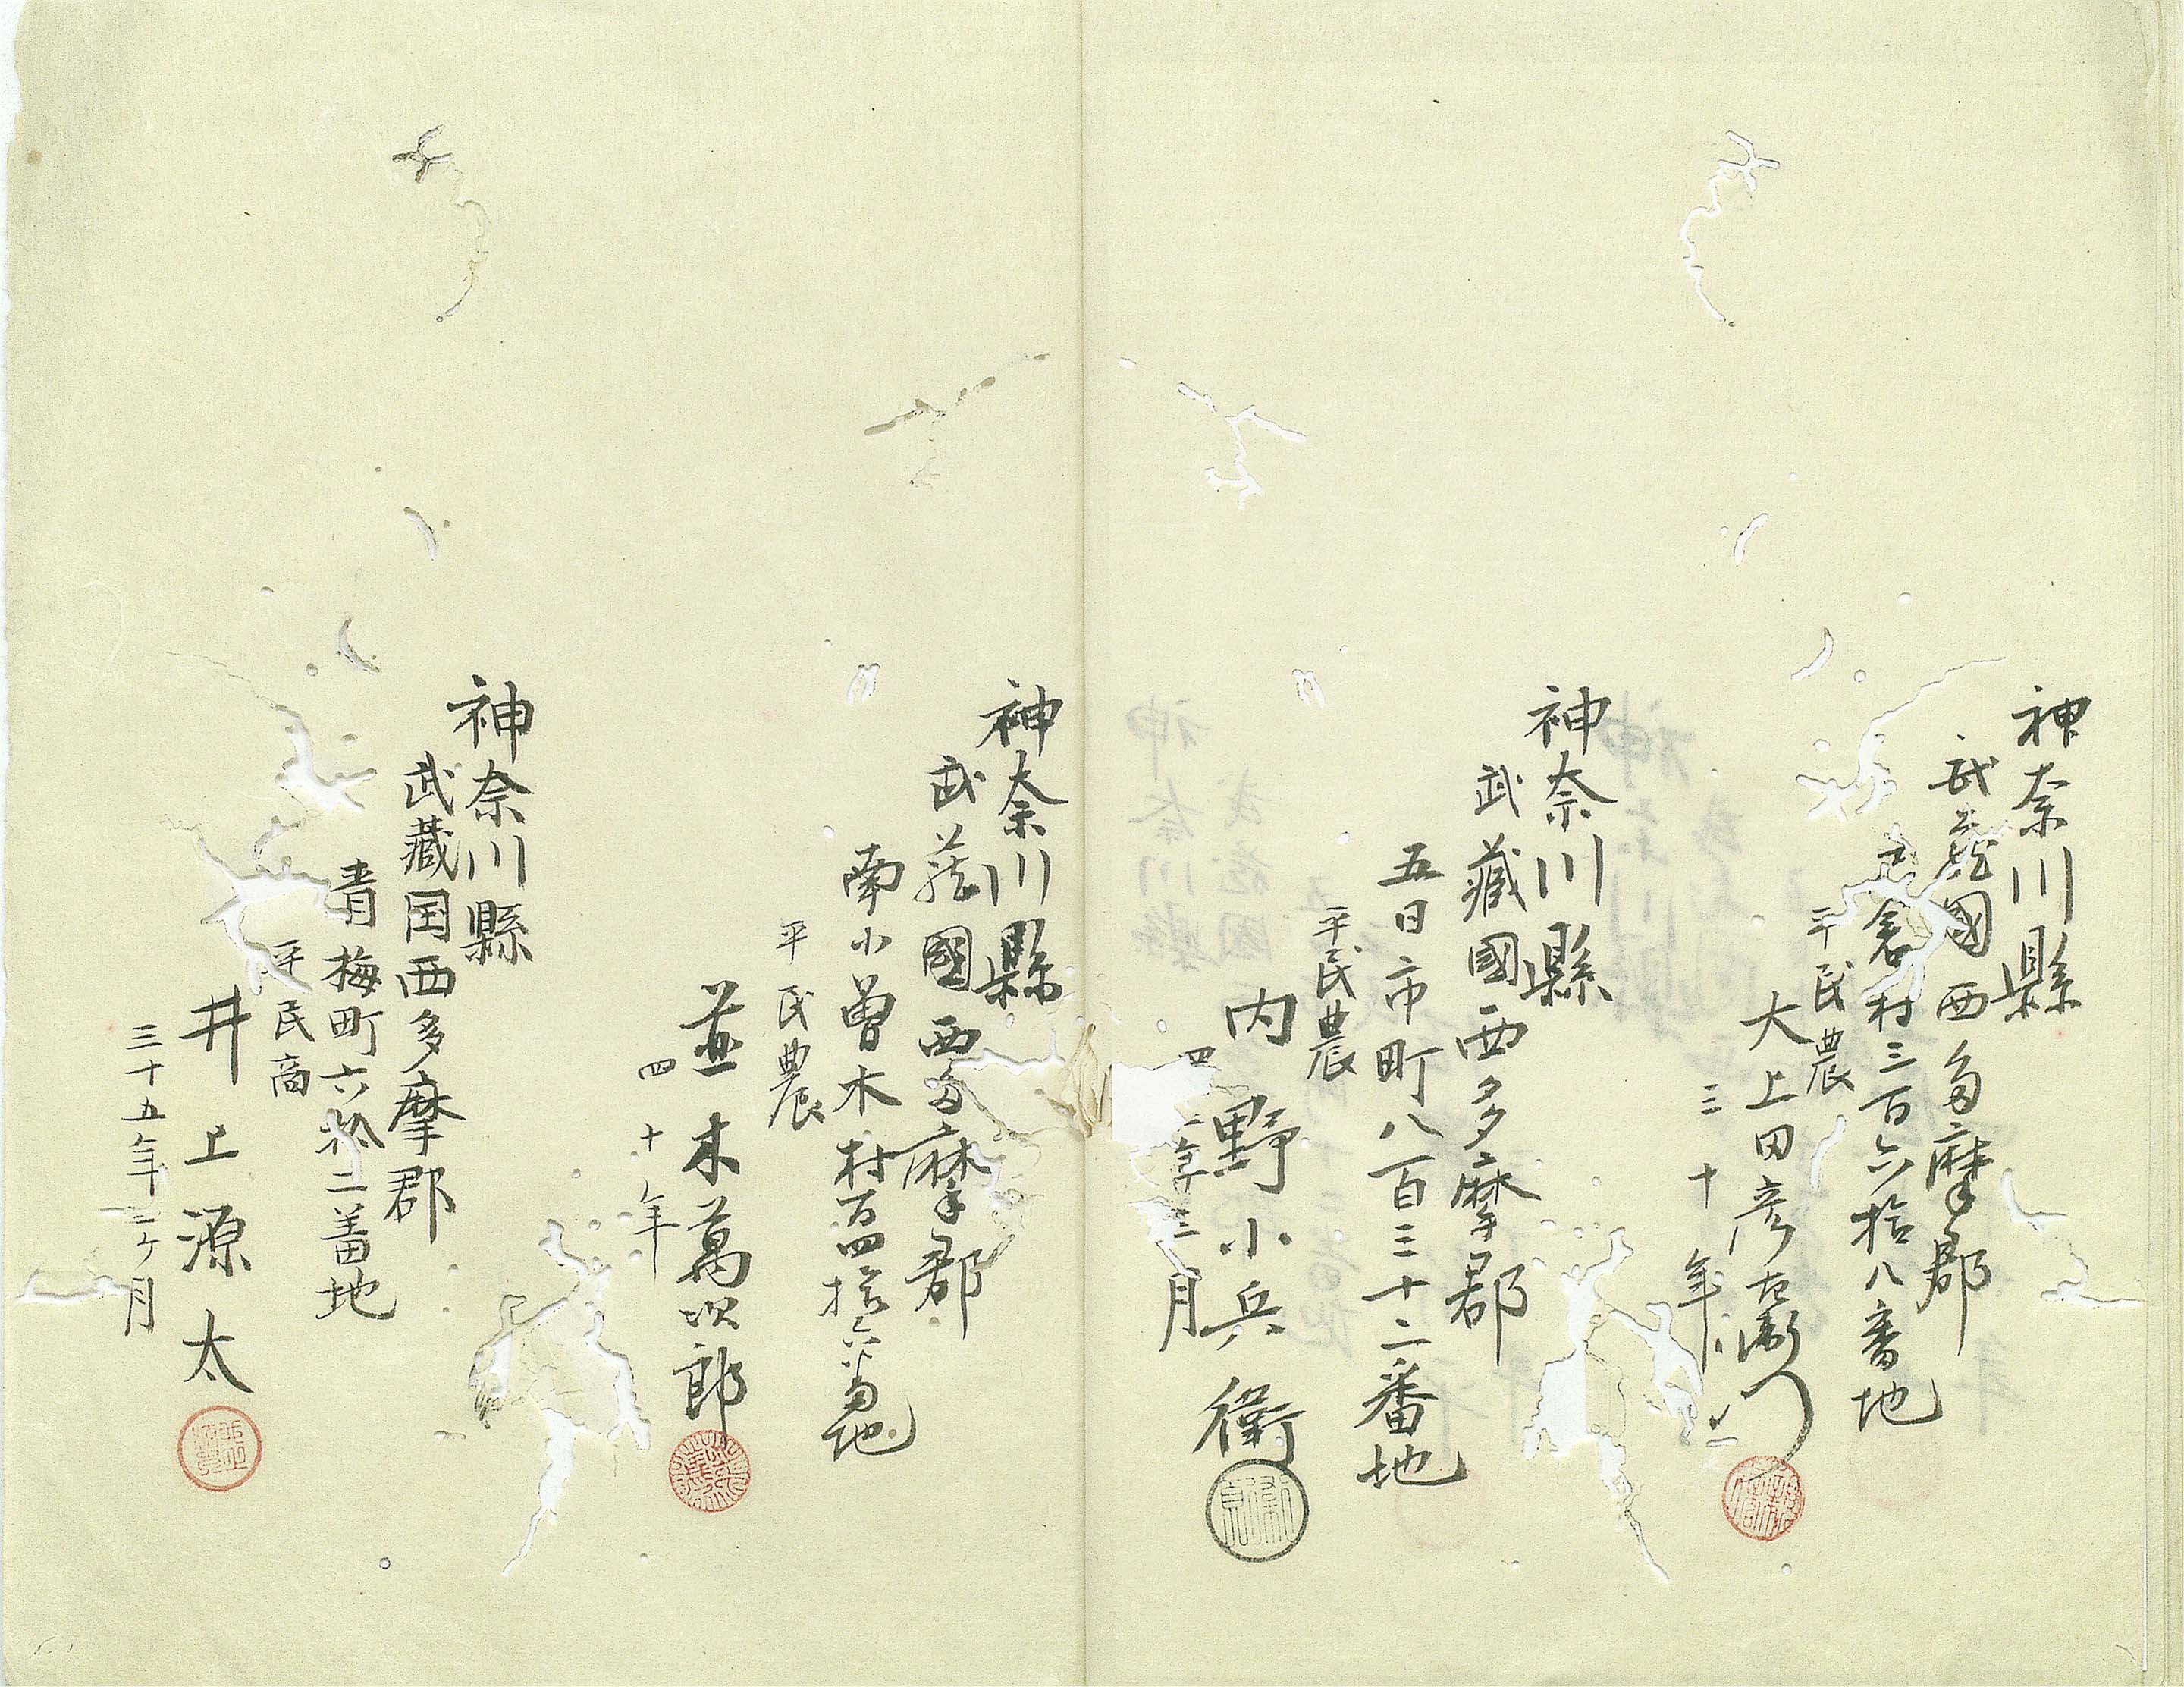 神奈川縣
武藏國西多摩郡
倉村三百六拾八番地
平民農
大上田彦左衛門
三十年
神奈川縣
武藏國西多摩郡
五日市町八百三十二番地
平民農
内野小兵衛
四 年三 月
神奈川縣
武藏國西多摩郡
南小曽木村百四拾六番地
平民農
並木萬次郎
四十年
神奈川縣
武藏国西多摩郡
青梅町六拾二番地
平民商
井上源太
三十五年二ケ月